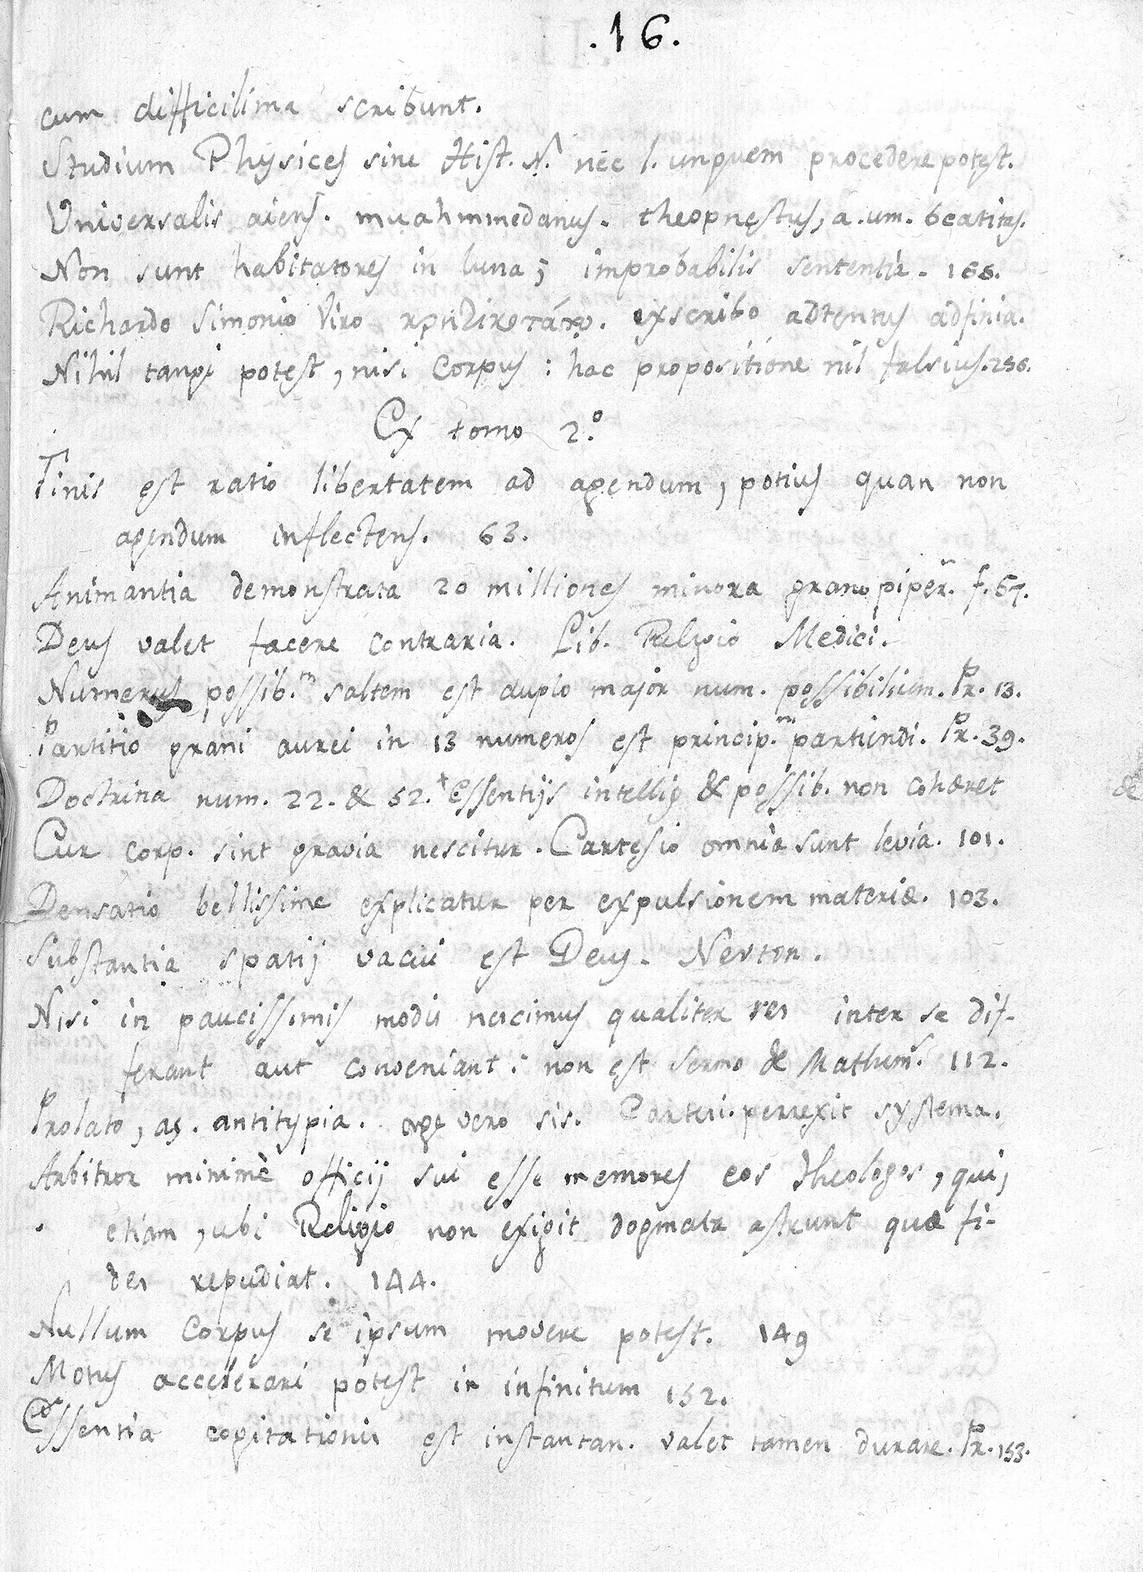 .16.
cum difficilima scribunt.
Studium Physices sine Hist. N. nec l. unguem procedere potest.
Universalis aiens. muahmmedanus. theopnęstus, a. um. beatitas.
Non sunt habitatores in luna; improbabilis sententia. 168.
Richardo Simonio Viro exscribo adtentus adfinia.
Nihil tangi potest, nisi Corpus: hac propositione nil falsius. 256.
Ex tomo 2.º
Finis est ratio libertatem ad agendum, potius quan non
agendum inflectens. 63.
Animantia demonstrata 20 milliones minora grano piper. f. 67.
Deus valet facere contraria. Lib. Religio Medici.
Numerus possib.m saltem est duplo major num. possibilium. Pr. 13.
Partitio grani aurei in 13 numeros est princip.m partiendi. Pr. 39.
Doctrina num. 22. & 52. Essentijs intellig & possib. non cohæret
Cur corp. sint gravia nescitur. Cartesio omnia sunt levia. 101.
Densatio bellissime explicatur per expulsionem materiæ. 103.
Substantia spatij vacui est Deus. Nevton.
Nisi in paucissimis modis nescimus qualiter res inter se dif-
ferant aut conveniant: non est sermo de Mathem. 112.
Prolato, as. antitypia. age vero sis. perrexit systema.
Arbitror minimè officij sui esse memores eos theologos, qui,
etiam, ubi Religio non exigit dogmata astrunt quæ fi-
des repudiat. 144.
Nullum Corpus se ipsum movere potest. 149
Motus accelerari potest in infinitum 152.
Essentia cogitationis est instantan. valet tamen durare. Pr. 153.